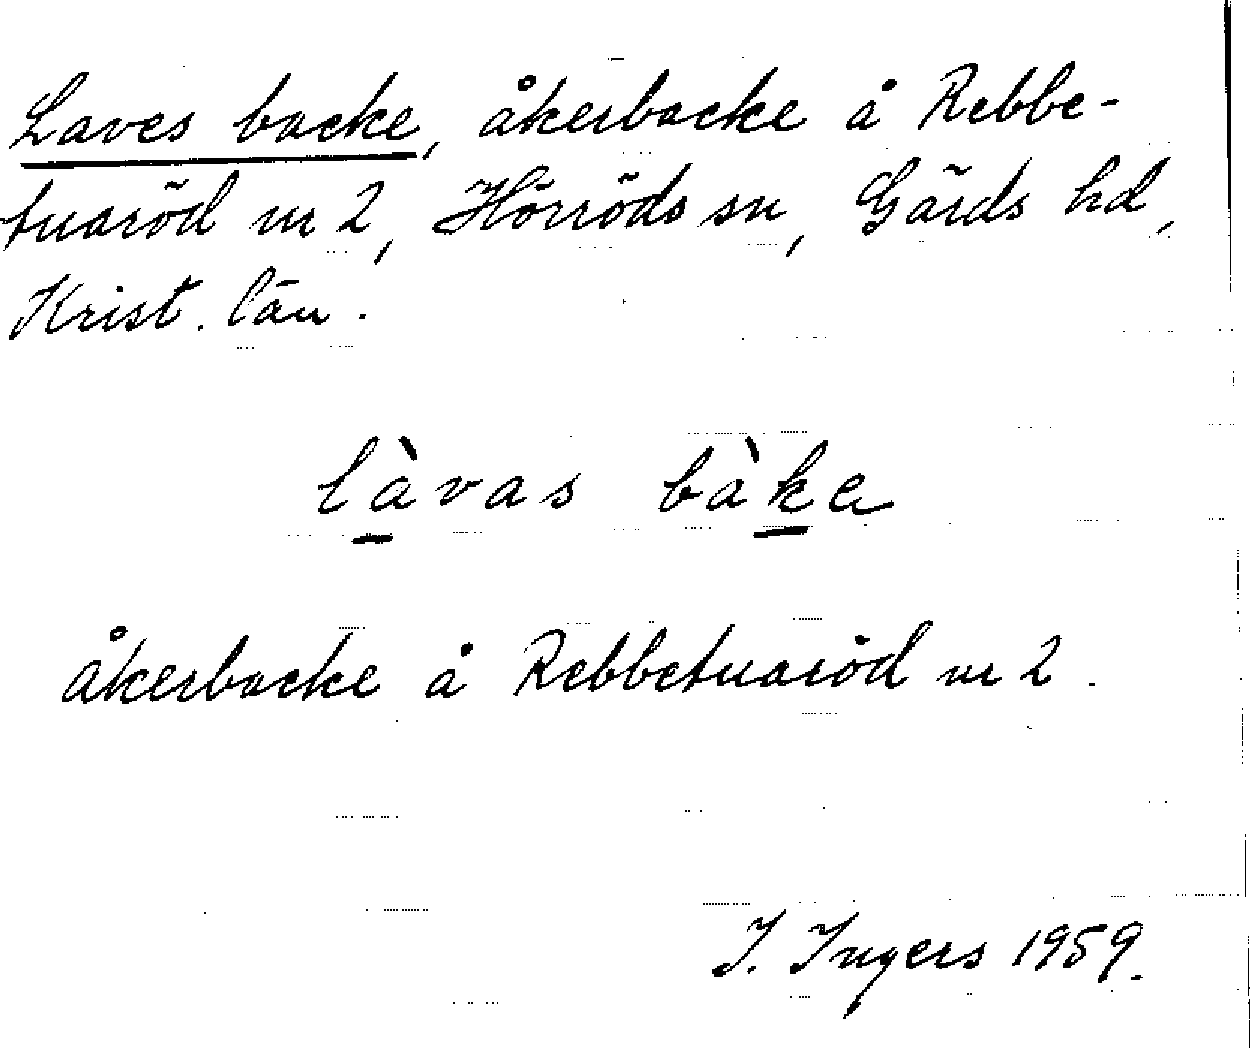 Laves backe, åkerbacke å Rebbe-
tuaröd nr 2, Hörröds sn, Gärds hd,
Krist. län.
làvas bàka
åkerbacke å Rebbetuaröd nr 2.
I. Ingers 1959.